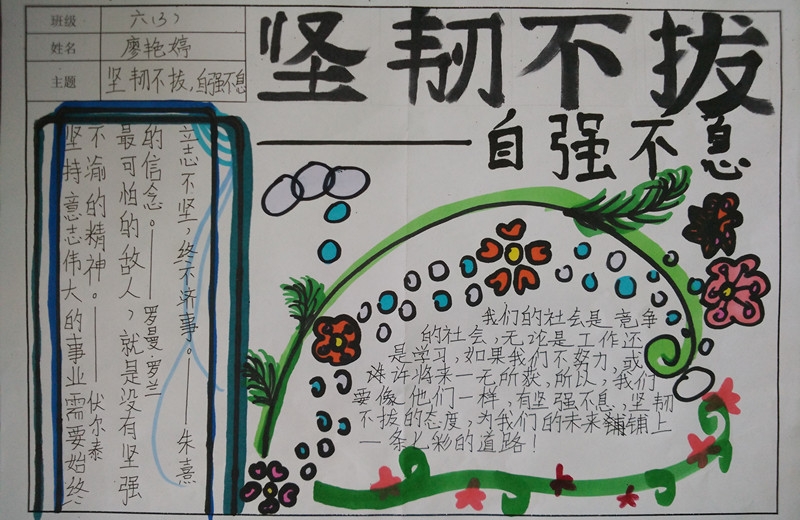 班级 六(3)
姓名 廖艳婷
主题 坚韧不拔,自强不息
坚韧不拔
——自强不息
坚持意志伟大的事业需要始终
不渝的精神。——伏尔泰
最可怕的敌人,就是没有坚强
的信念。——罗曼·罗兰
立志不坚,终不济事。——朱熹
我们的社会是竞争
的社会,无论是工作还
是学习,如果我们不努力,或
许将来一无所获,所以,我们
要像他们一样,有坚强不息,坚韧
不拔的态度,为我们的未来铺上
一条七彩的道路!